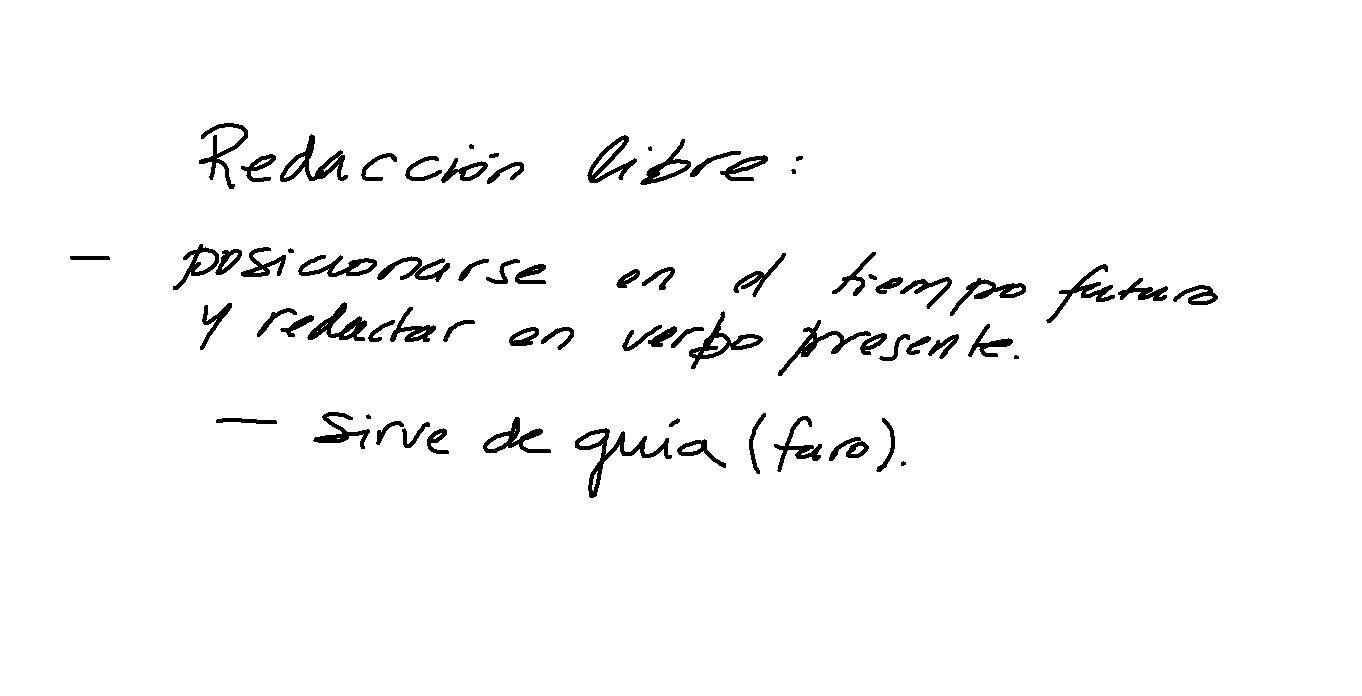 Redacción libre:
— posicionarse en el tiempo futuro
y redactar en verbo presente.
— sirve de guía (faro).